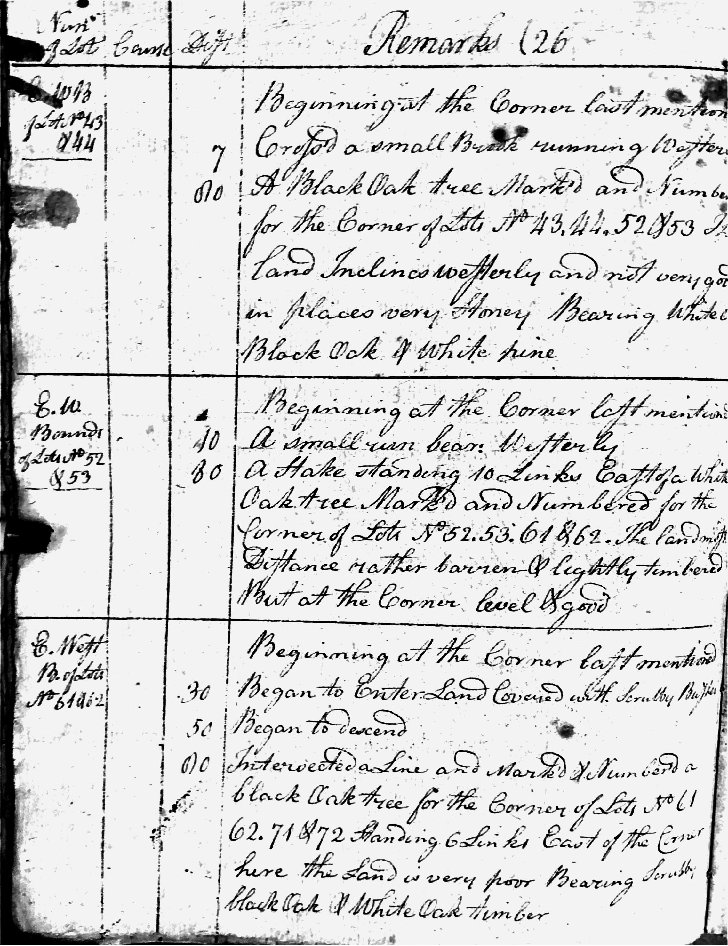 Num
of Lot Course Dist Remarks (26
E. W B
of Lots No 43
& 44
Beginning at the Corner last mention
7 Crossd a small Brook running Wester
80 A Black Oak tree Mark'd and Numbe
for the Corner of Lots No 43. 44. 52 & 53
land Inclines westerly and not very goo
in places very Stoney Bearing White
Black Oak & White pine
E. W.
Bounds
of Lots No 52
& 53
Beginning at the Corner last mention
40 A small run bear: Westerly
80 A Stake standing 10 Links East of a Whit
Oak tree Mark'd and Numbered for the
Corner of Lots No 52. 53. 61 & 62. The land most
Distance rather barren & lightly timbered
But at the Corner level & good
E. West
B of Lots
No 61 & 62
Beginning at the Corner last mentioned
30 Began to Enter Land Covered with Scrubby Bushes
50 Began to descend
80 Intersected a Line and Mark'd & Numberd a
black Oak tree for the Corner of Lots No 61
62. 71 & 72 Standing 6 Links East of the Corner
here the Land is very poor Bearing Scrubby
black Oak & White Oak timber